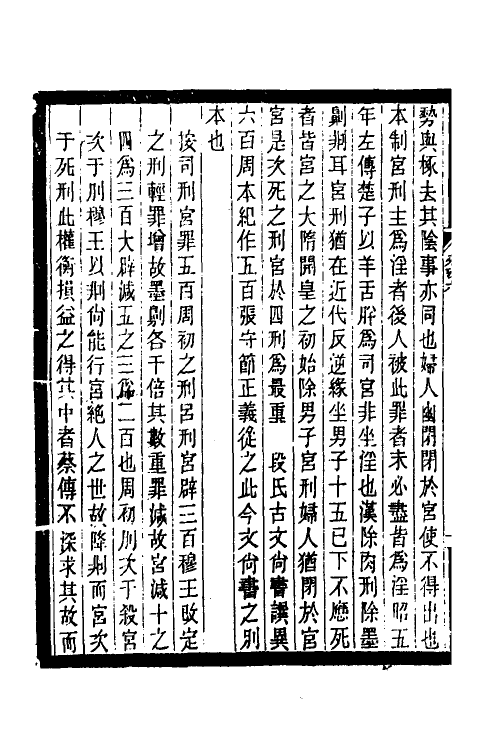 勢與椓去其陰事亦同也婦人幽閉閉於宮使不得出也
本制宮刑主爲淫者後人被此罪者未必盡皆爲淫昭五
年左傳楚子以羊舌肸爲司宮非坐淫也漢除肉刑除墨
劓剕耳宮刑猶在近代反逆緣坐男子十五已下不應死
者皆宮之大隋開皇之初始除男子宮刑婦人猶閉於宮
宮是次死之刑宮於四刑爲最重　段氏古文尙書譔異
六百周本紀作五百張守節正義從之此今文尙書之別
本也
按司刑宮罪五百周初之刑呂刑宮辟三百穆王改定
之刑輕罪增故墨劓各千倍其數重罪減故宮減十之
四爲三百大辟減五之三爲二百也周初刖次于殺宮
次于刖穆王以剕尙能行宮絕人之世故降剕而宮次
于死刑此權衡損益之得其中者蔡傳不深求其故而